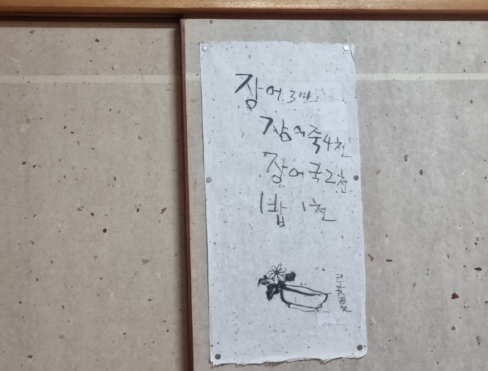 장어 3만
장어죽 4천
장어국 2천
밥 1천